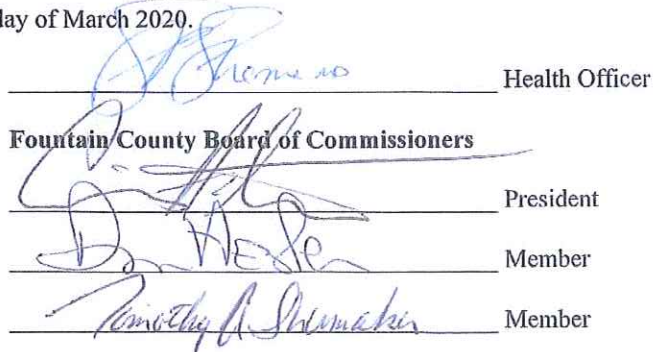 day of March 2020.
Health Officer
Fountain County Board of Commissioners
President
Member
Timothy A Shumaker Member